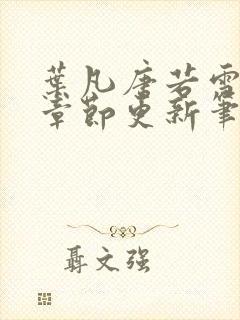 葉凡唐若雪
章節更新筆
聶文强